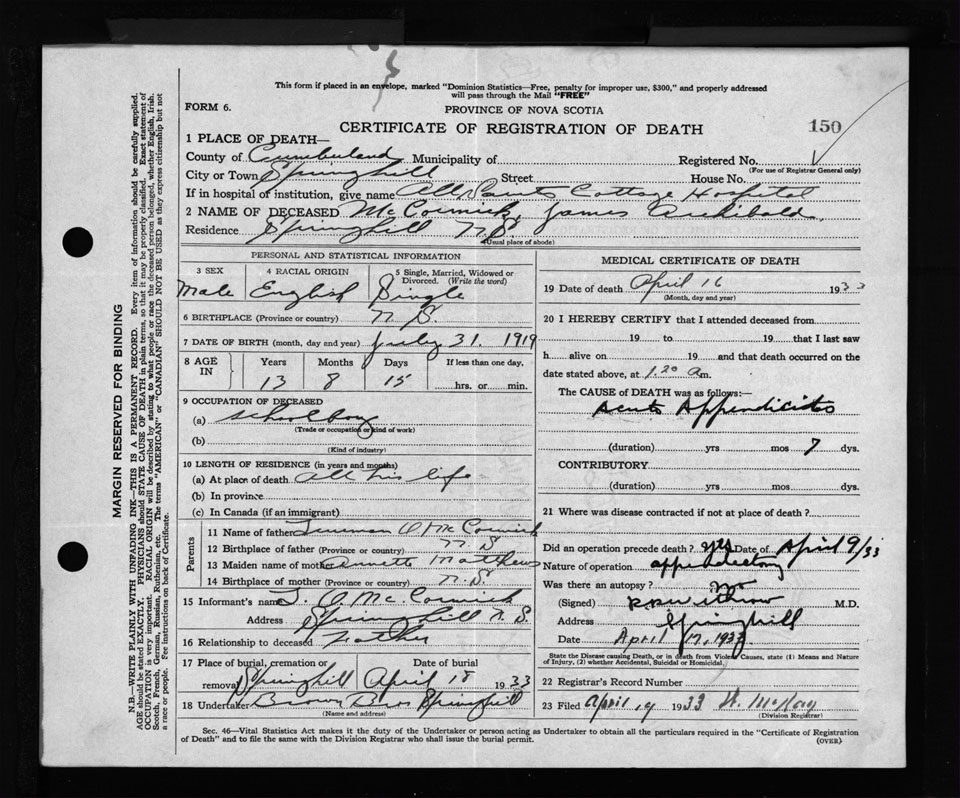 This form if placed in an envelope, marked "Dominion Statistics—Free, penalty for improper use, $300," and properly addressed
will pass through the Mail "FREE"
FORM 6.
PROVINCE OF NOVA SCOTIA
CERTIFICATE OF REGISTRATION OF DEATH
150
1 PLACE OF DEATH—
County of Cumberland Municipality of Registered No.
(For use of Registrar General only)
City or Town Springhill Street House No.
If in hospital or institution, give name All Saints Cottage Hospital
2 NAME OF DECEASED McCormick, James Archibald.
Residence Springhill N.S.
(Usual place of abode)
PERSONAL AND STATISTICAL INFORMATION
3 SEX
4 RACIAL ORIGIN
5 Single, Married, Widowed or Divorced. (Write the word)
Male English Single
6 BIRTHPLACE (Province or country) N.S.
7 DATE OF BIRTH (month, day and year) July 31. 1919
8 AGE IN
Years Months Days If less than one day,
13 8 15 hrs. or min.
9 OCCUPATION OF DECEASED
(a) schoolboy
(Trade or occupation or kind of work)
(b)
(Kind of industry)
10 LENGTH OF RESIDENCE (in years and months)
(a) At place of death all his life
(b) In province
(c) In Canada (if an immigrant)
Parents
11 Name of father O McCormick
12 Birthplace of father (Province or country) N.S.
13 Maiden name of mother Annette Matthews
14 Birthplace of mother (Province or country) N.S.
15 Informant's name T. O Mc.Cormick
Address Springhill N.S.
16 Relationship to deceased Father
17 Place of burial, cremation or removal Springhill
Date of burial April 18 1933
18 Undertaker Brown Bros Springhill
(Name and address)
MEDICAL CERTIFICATE OF DEATH
19 Date of death April 16 1933
(Month, day and year)
20 I HEREBY CERTIFY that I attended deceased from
19 to 19 that I last saw
h alive on 19 and that death occurred on the
date stated above, at 1.20 a.m.
The CAUSE of DEATH was as follows:—
Acute Appendicitis
(duration) yrs mos 7 dys.
CONTRIBUTORY
(duration) yrs mos dys.
21 Where was disease contracted if not at place of death?
Did an operation precede death? yes Date of April 9/33
Nature of operation appendectomy
Was there an autopsy? no
(Signed) M.D.
Address Springhill
Date April 17, 1933
State the Disease causing Death, or in death from Violent Causes, state (1) Means and Nature
of Injury, (2) whether Accidental, Suicidal or Homicidal.
22 Registrar's Record Number
23 Filed April 19 1933 McKay
(Division Registrar)
Sec. 46—Vital Statistics Act makes it the duty of the Undertaker or person acting as Undertaker to obtain all the particulars required in the "Certificate of Registration
of Death" and to file the same with the Division Registrar who shall issue the burial permit.
(OVER)
MARGIN RESERVED FOR BINDING
N.B.—WRITE PLAINLY WITH UNFADING INK—THIS IS A PERMANENT RECORD. Every item of information should be carefully supplied.
AGE should be stated EXACTLY. PHYSICIANS should STATE CAUSE OF DEATH in plain terms, so that it may be properly classified. Exact statement of
OCCUPATION is very important. RACIAL ORIGIN will be described by stating to what people or race the deceased person belonged, whether English, Irish,
Scotch, French, German, Russian, Ruthenian, etc. The terms "AMERICAN" or "CANADIAN" SHOULD NOT BE USED as they express citizenship but not
a race or people. Fee instructions on back of Certificate.